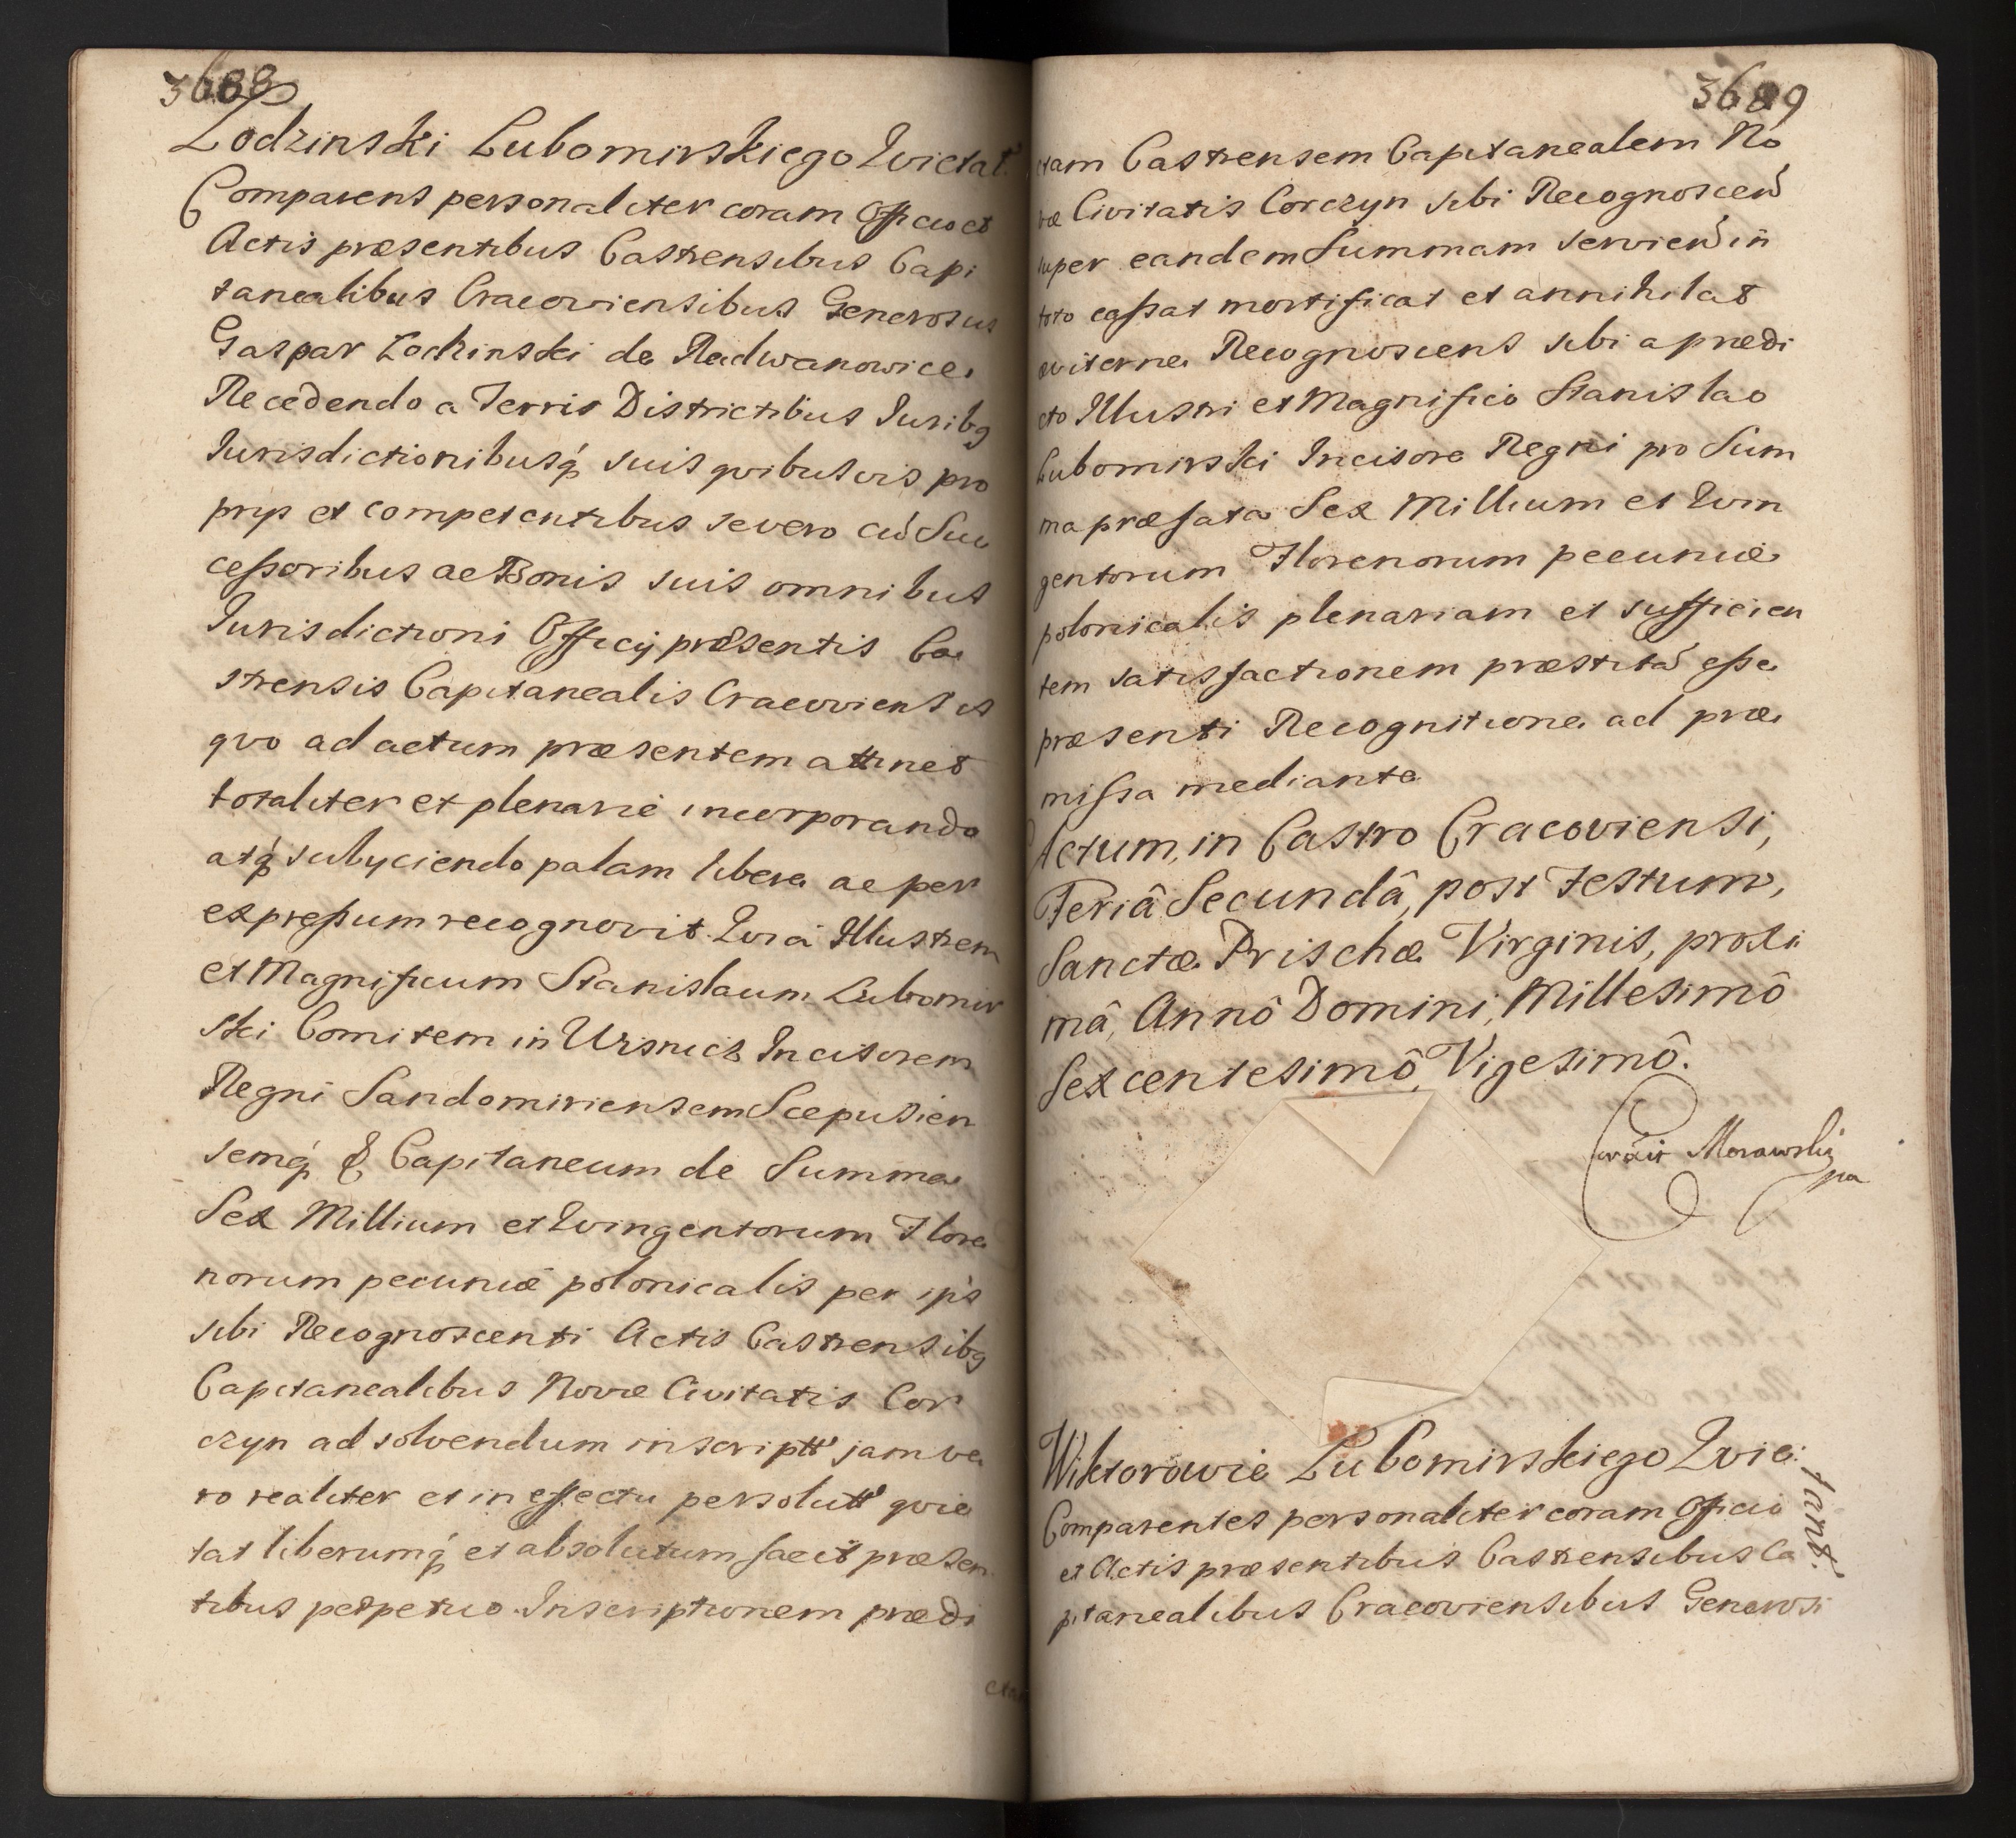 3688
Lodzinski Lubomirskiego Qvietat
Comparens personaliter coram Officio et
Actis præsentibus Castrensibus Capi
tanealibus Cracoviensibus Generosus
Gaspar Lodzinski de Radwanowice
Recedendo a Terris Districtibus Juribg
Jurisdictionibusq́ suis qvibusvis pro
prijs et competentibus se vero cū Suc
cessoribus ac Bonis suis omnibus
Jurisdictioni Officij præsentis Ca
strensis Capitanealis Cracoviensis
qvo ad actum præsentem attinet
totaliter et plenarie incorporando
atq́ subyciendo palam libere ac per
expressum recognovit. Qvia Illustrem
et Magnificum Stanislaum Lubomir
ski Comitem in Wisnicz Incisorem
Regni Sandomiriensem Scepusien
semq́ & Capitaneum de Summa
Sex Millium et Qvingentorum Flore
norum pecuniæ polonicalis per ips
sibi Recognoscenti Actis Castrensibg
Capitanealibus Novæ Civitatis Cor
czyn ad solvendum inscriptt jam ve
ro realiter et in effectu persolutt qvie
tat liberumq́ et absolutum facit præsen
tibus perpetuo. Inscriptionem prædi
3689
ctam Castrensem Capitanealem No
væ Civitatis Corczyn sibi Recognoscen
super eandem Summam servien in
toto cassat mortificat et annihilat
æviterne Recognoscens sibi a prædi
cto Illustri et Magnifico Stanislao
Lubomirski Incisore Regni pro Sum
ma præfata Sex Millium et Qvin
gentorum Florenorum pecuniæ
polonicalis plenariam et sufficien
tem satisfactionem præstitā esse
præsenti Recognitione ad præ
missa mediante
Actum, in Castro Cracoviensi,
Feriâ Secundâ, post Festum,
Sanctæ Prischæ Virginis, proxi
mâ, Annô Domini, Millesimô
Sexcentesimô, Vigesimô.
Morawski
Wiktorowie Lubomirskiego Qvie:
tant:
Comparentes personaliter coram Officio
et Actis præsentibus Castrensibus Ca
pitanealibus Cracoviensibus Generosi